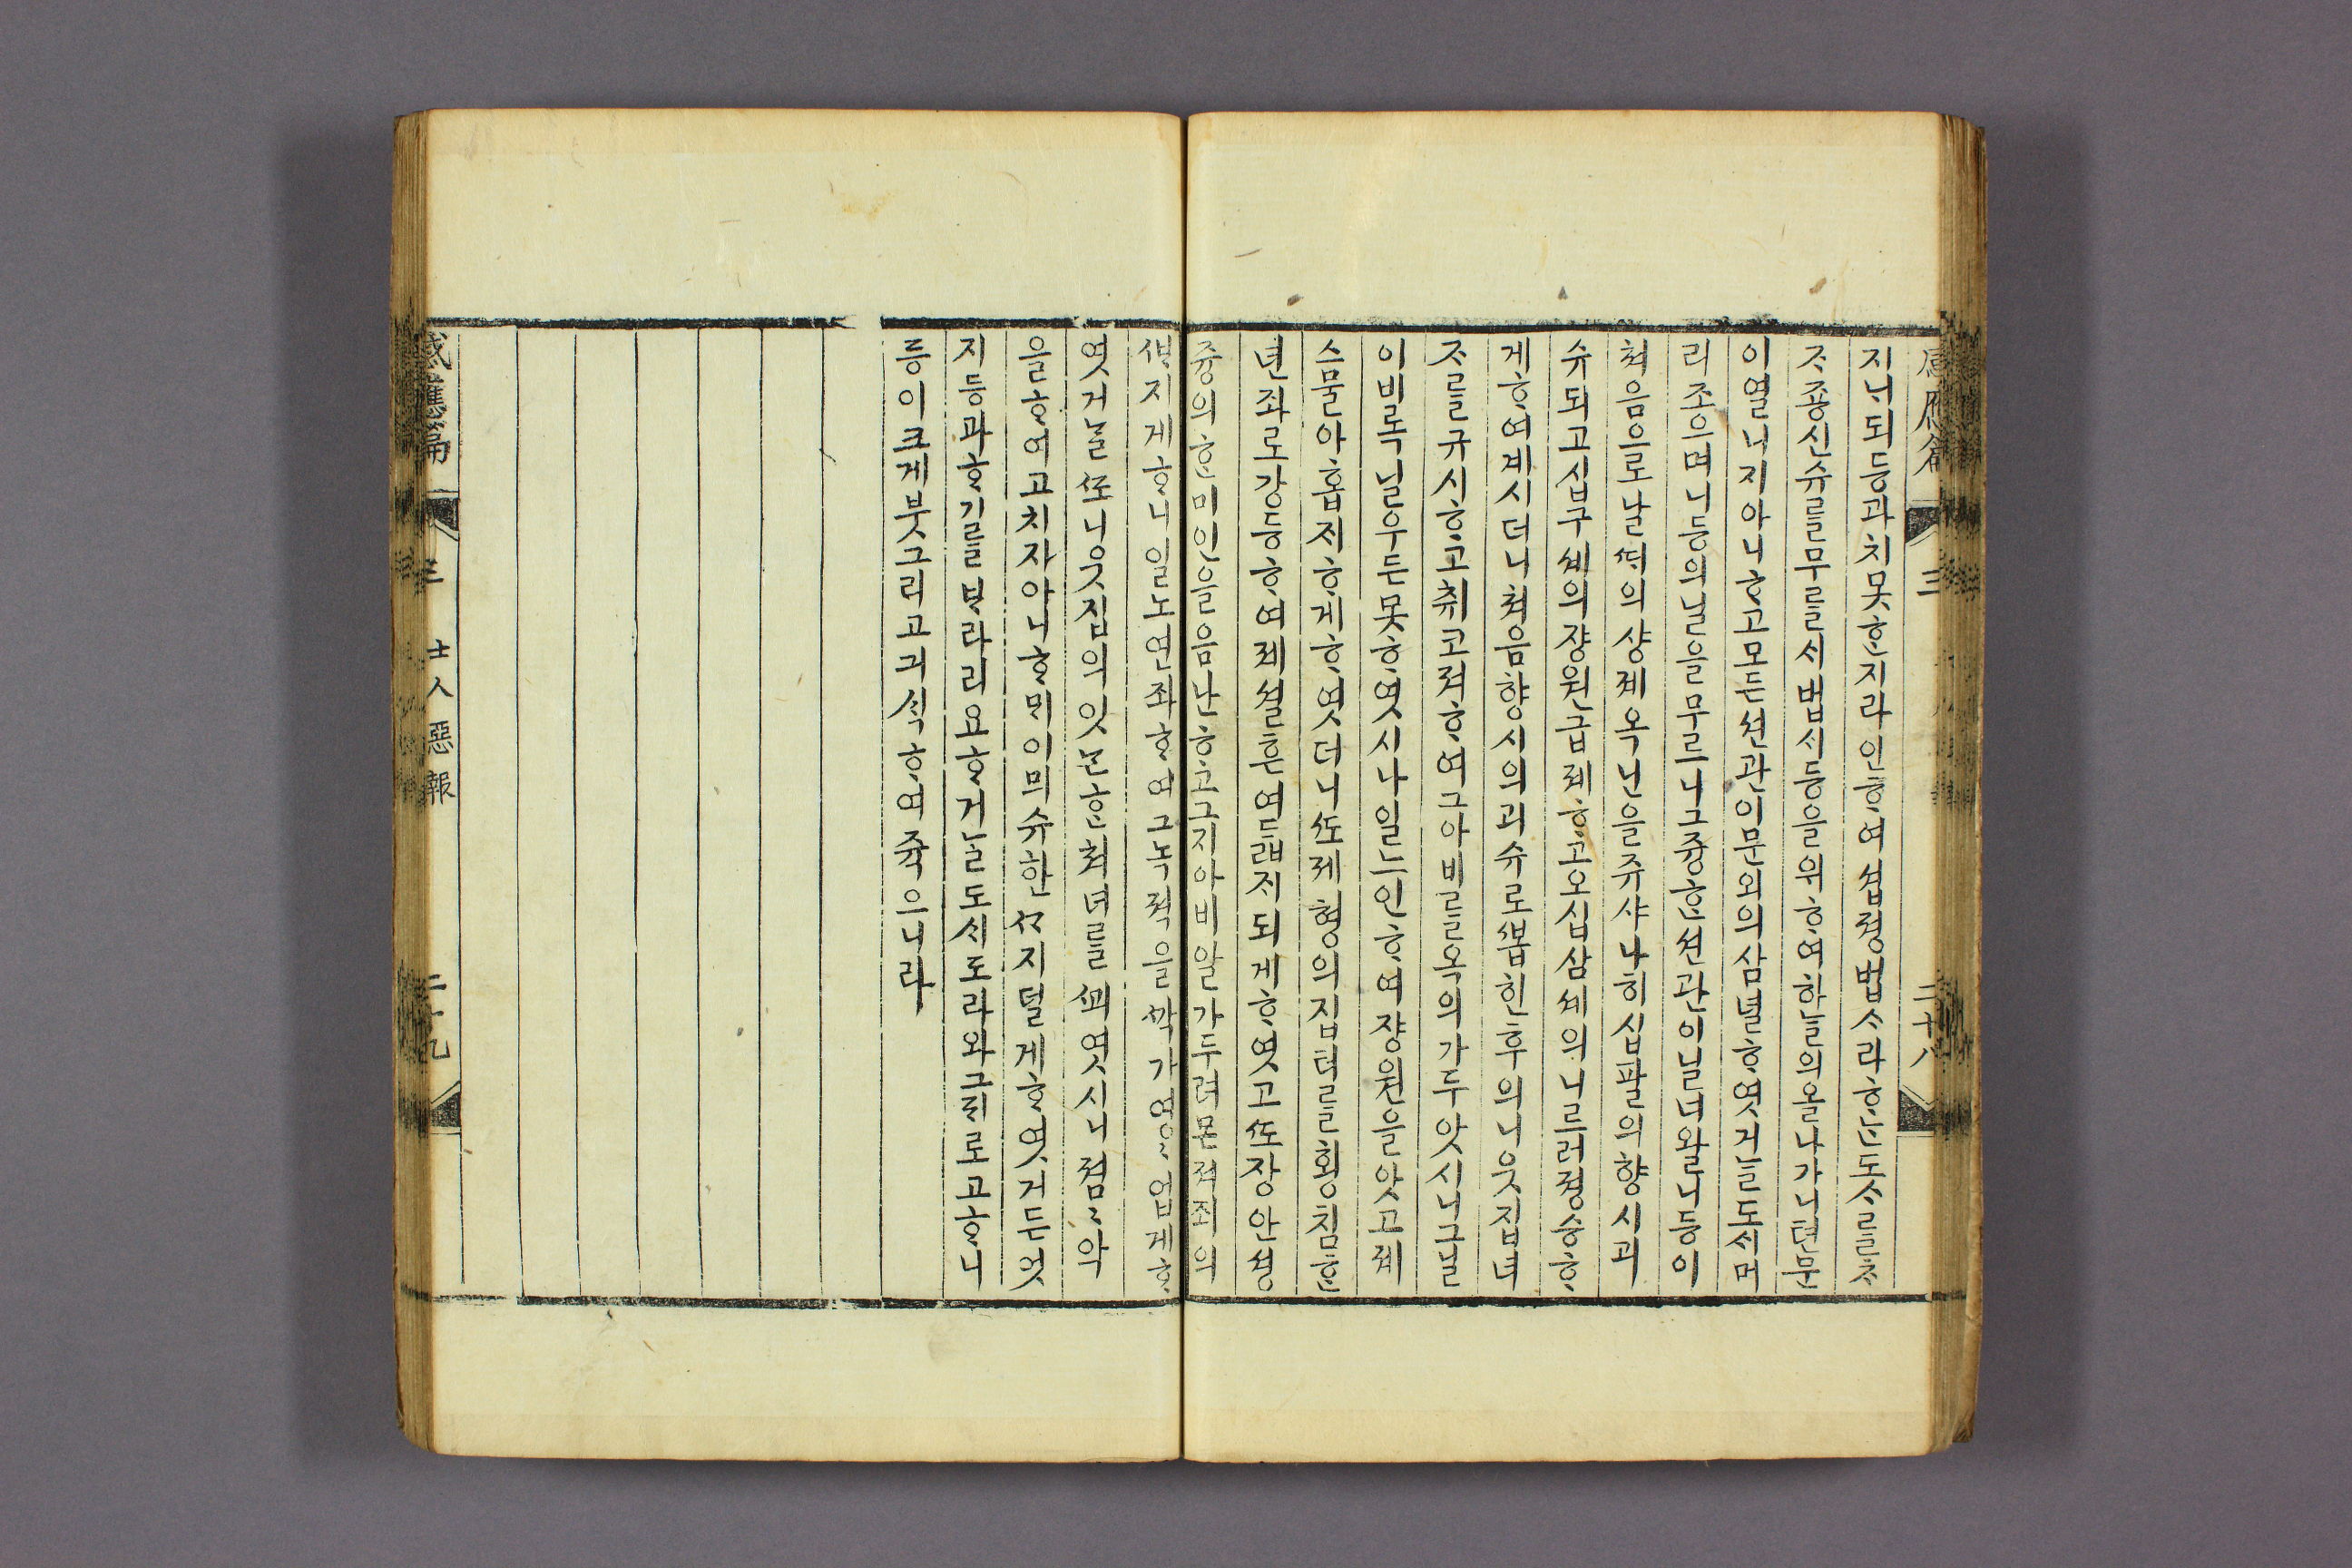 應應篇 三 二十八
지닉되등과치못ᄒᆞᆫ지라인ᄒᆞ여섭졍법ᄉᆞ라ᄒᆞᄂᆞᆫ도ᄉᆞ를쳐
ᄌᆞ죵신슈를무를ᄉᆡ법ᄉᆡ등을위ᄒᆞ여하ᄂᆞᆯ의올나가니텬문
이열니지아니ᄒᆞ고모든션관이문외의삼녈ᄒᆞ엿거ᄂᆞᆯ도ᄉᆡ머
리조으며니등의닐을무르니그즁ᄒᆞᆫ션관이닐너왈니등이
쳐음으로날ᄯᆡ의샹졔옥닌을쥬샤나히십팔의향시괴
슈되고십구셰의쟝원급졔ᄒᆞ고오십삼셰의니르러졍승ᄒᆞ
게ᄒᆞ여계시더니쳐음향시의괴슈로ᄲᅩᆸ힌후의니웃집녀
ᄌᆞ를규시ᄒᆞ고취코져ᄒᆞ여그아비를옥의가두앗시니그닐
이비록닐우든못ᄒᆞ엿시나일노인ᄒᆞ여쟝원을앗고졔
스물아홉ᄌᆡᄒᆞ게ᄒᆞ엿더니ᄯᅩ졔형의집터를횡침ᄒᆞᆫ
년좌로강등ᄒᆞ여졔셜흔여ᄃᆞᆲᄌᆡ되게ᄒᆞ엿고ᄯᅩ쟝안셩
즁의ᄒᆞᆫ미인을음난ᄒᆞ고그지아비알가두려몬져죄의
ᄲᅡ지게ᄒᆞ니일노연좌ᄒᆞ여그녹젹을ᄭᅡᆨ가영영업게ᄒᆞ
엿거ᄂᆞᆯᄯᅩ니웃집의잇ᄂᆞᆫᄒᆞᆫ쳐녀를ᄭᅬ엿시니졈졈악
을ᄒᆞ여고치지아니ᄒᆞᄆᆡ이믜슈한ᄭᆞ지덜게ᄒᆞ엿거든엇
지등과ᄒᆞ기를ᄇᆞ라리요ᄒᆞ거ᄂᆞᆯ도ᄉᆡ도라와그ᄃᆡ로고ᄒᆞ니
등이크게붓그리고괴ᄉᆡᆨᄒᆞ여쥭으니라
感應篇 三 士人惡報 二十九